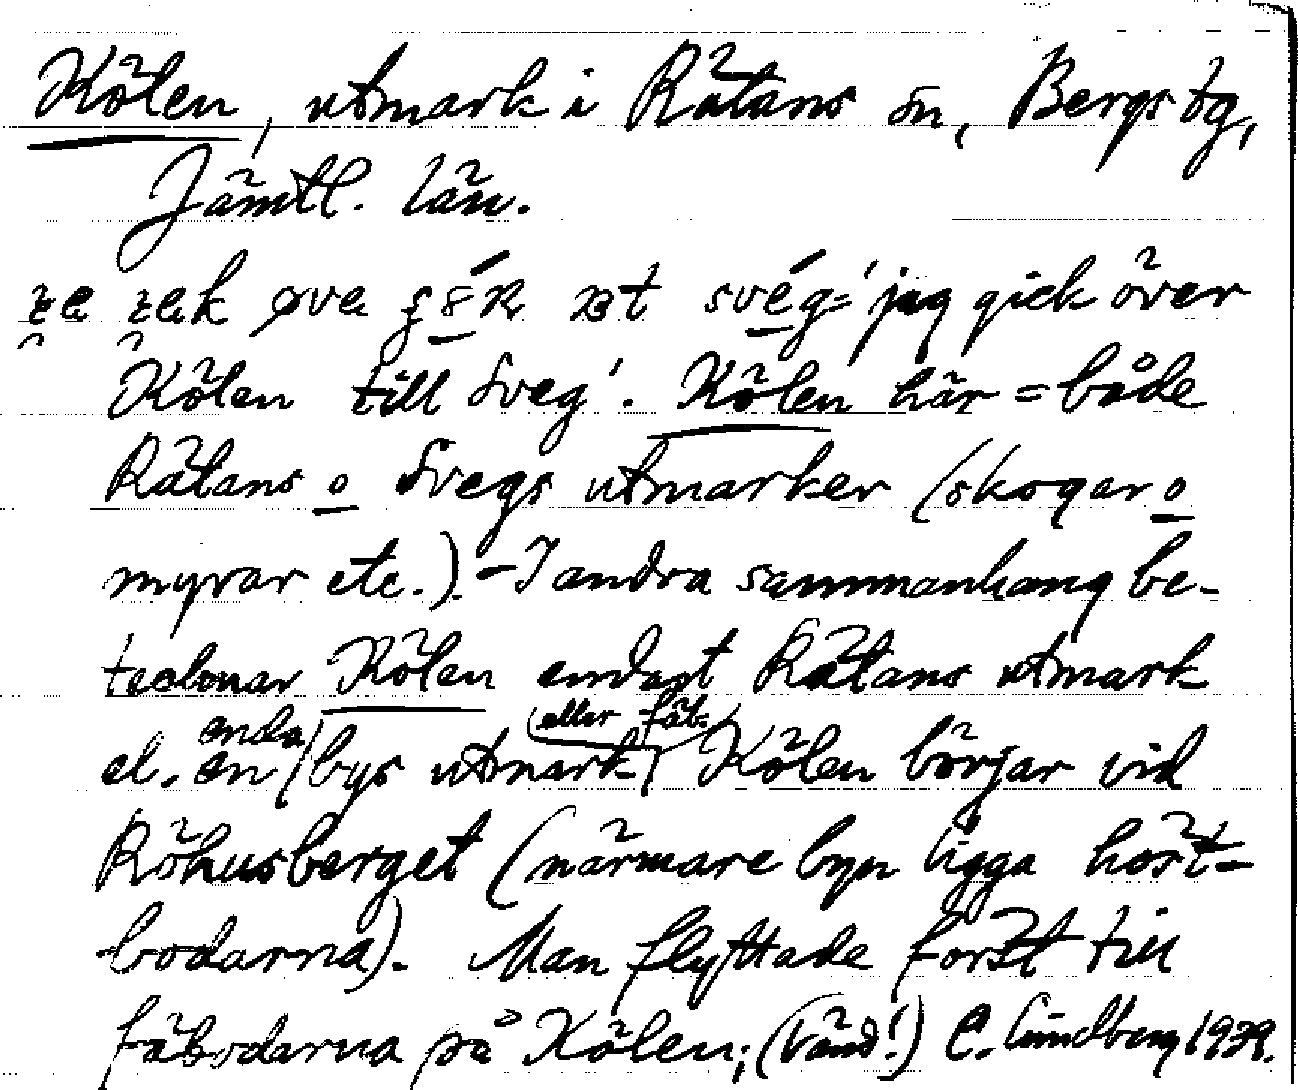 Kölen, utmark i Rätans sn, Bergs tg,
Jämtl. län.
sveg= 'jag gick över
Kölen till Sveg'. Kölen här = både
Rätans o Svegs utmarker (skogar o
myrar etc.). – I andra sammanhang be-
tecknar Kölen endast Rätans utmark
el. en enda bys utmark (eller fäb. Kölen börjar vid
Röhusberget (närmare byn ligga höst-
bodarna). Man flyttade först till
fäbodarna på Kölen; (vänd!) C. Lindberg 1939.